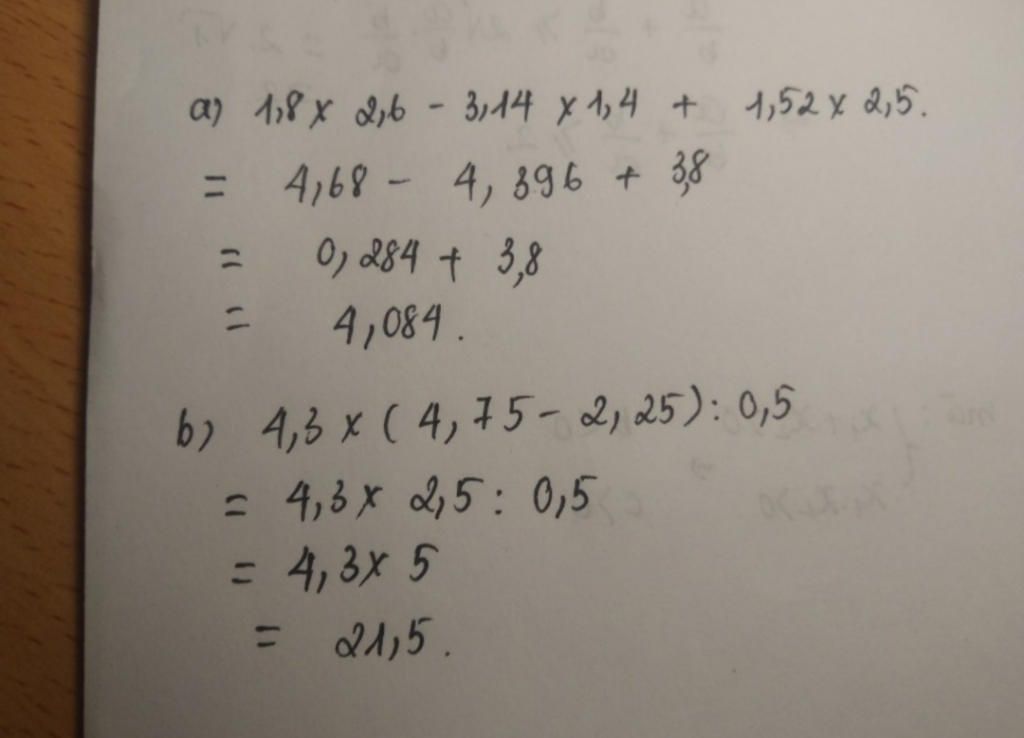 a) 1,8 x 2,6 - 3,14 x 1,4 + 1,52 x 2,5.
= 4,68 - 4,396 + 3,8
= 0,284 + 3,8
= 4,084.
b) 4,3 x (4,75 - 2,25) : 0,5
= 4,3 x 2,5 : 0,5
= 4,3 x 5
= 21,5.